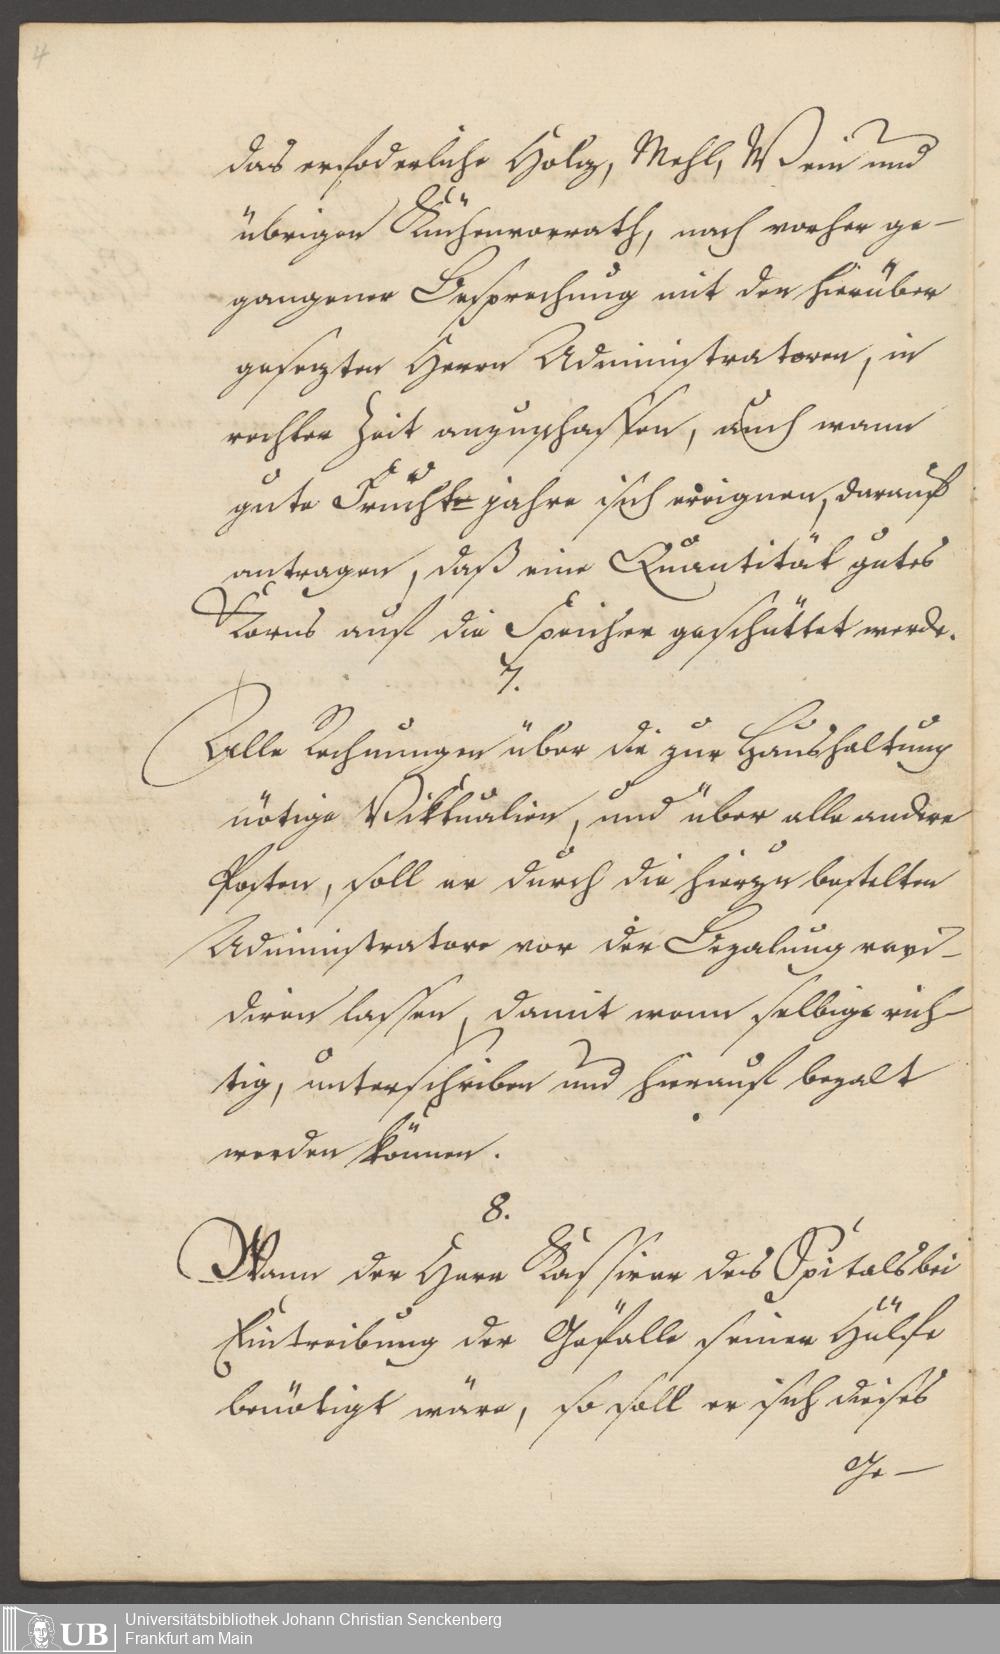 4
das erfoderliche Holz, Mehl, Wein und
übrigen Küchenvorrath, nach vorher ge-
gangener Besprechung mit den hierüber
gesezten Herrn Administratoren, in
rechter Zeit anzuschaffen, auch wann
gute Frucht jahre sich ereignen, darauf
antragen, daß eine Quantität gutes
Korns auf die Speicher geschüttet werde.
7.
Alle Rechnungen über die zur Haushaltung
nötige Viktualien, und über alle andere
Posten, soll er durch die hierzu bestelten
Administratore vor der Bezalung revi-
diren lassen, damit wenn selbige rich-
tig, unterschriben und hierauf bezalt
werden können.
8.
Wann der Herr Kassirer des Spitals bei
Eintreibung der Gefälle seiner Hülfe
benötigt wäre, so soll er sich dieses
Ge-
UB
Universitätsbibliothek Johann Christian Senckenberg
Frankfurt am Main